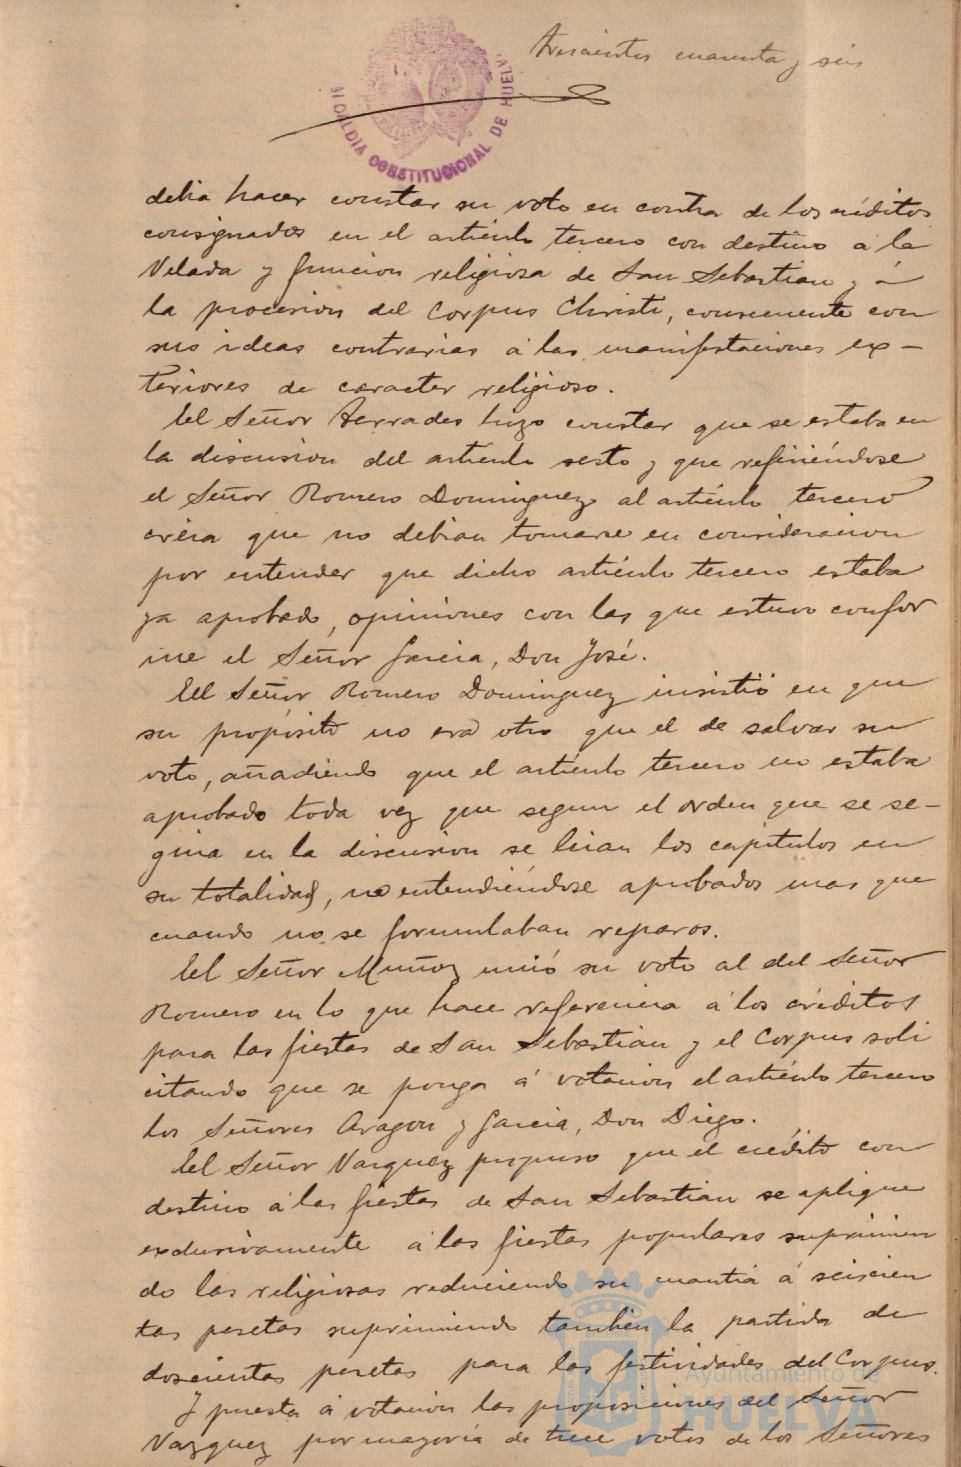 Trescientos cuarenta y seis
ALCALDIA CONSTITUCIONAL DE HUELVA
debia hacer constar su voto en contra de los créditos
consignados en el artículo tercero con destino á la
Velada y funcion religiosa de San Sebastian y á
la procesion del Corpus Christi, consecuente con
sus ideas contrarias á las manifestaciones ex-
teriores de caracter religioso.
El Señor Terrades hizo constar que se estaba en
la discusion del artículo sesto y que refiriéndose
el Señor Romero Dominguez al artículo tercero
creia que no debian tomarse en consideracion
por entender que dicho artículo tercero estaba
ya aprobado, opiniones con las que estuvo confor
me el Señor Garcia, Don José.
El Señor Romero Dominguez insistió en que
su propósito no era otro que el de salvar su
voto, añadiendo que el artículo tercero no estaba
aprobado toda vez que segun el orden que se se-
guia en la discusion se leian los capítulos en
su totalidad, no entendiéndose aprobados mas que
cuando no se formulaban reparos.
El Señor Muñoz unió su voto al del Señor
Romero en lo que hace referencia á los créditos
para las fiestas de San Sebastian y el Corpus soli
citando que se ponga á votacion el artículo tercero
los Señores Aragon y Garcia, Don Diego.
El Señor Vazquez propuso que el crédito con
destino á las fiestas de San Sebastian se aplique
exclusivamente á las fiestas populares suprimien
do las religiosas reduciendo su cuantía á seiscien
tas pesetas suprimiendo tambien la partida de
doscientas pesetas para las festividades del Corpus.
Y puesta á votacion las proposiciones del Señor
Vazquez por mayoría de trece votos de los Señores
Ayuntamiento de
HUELVA